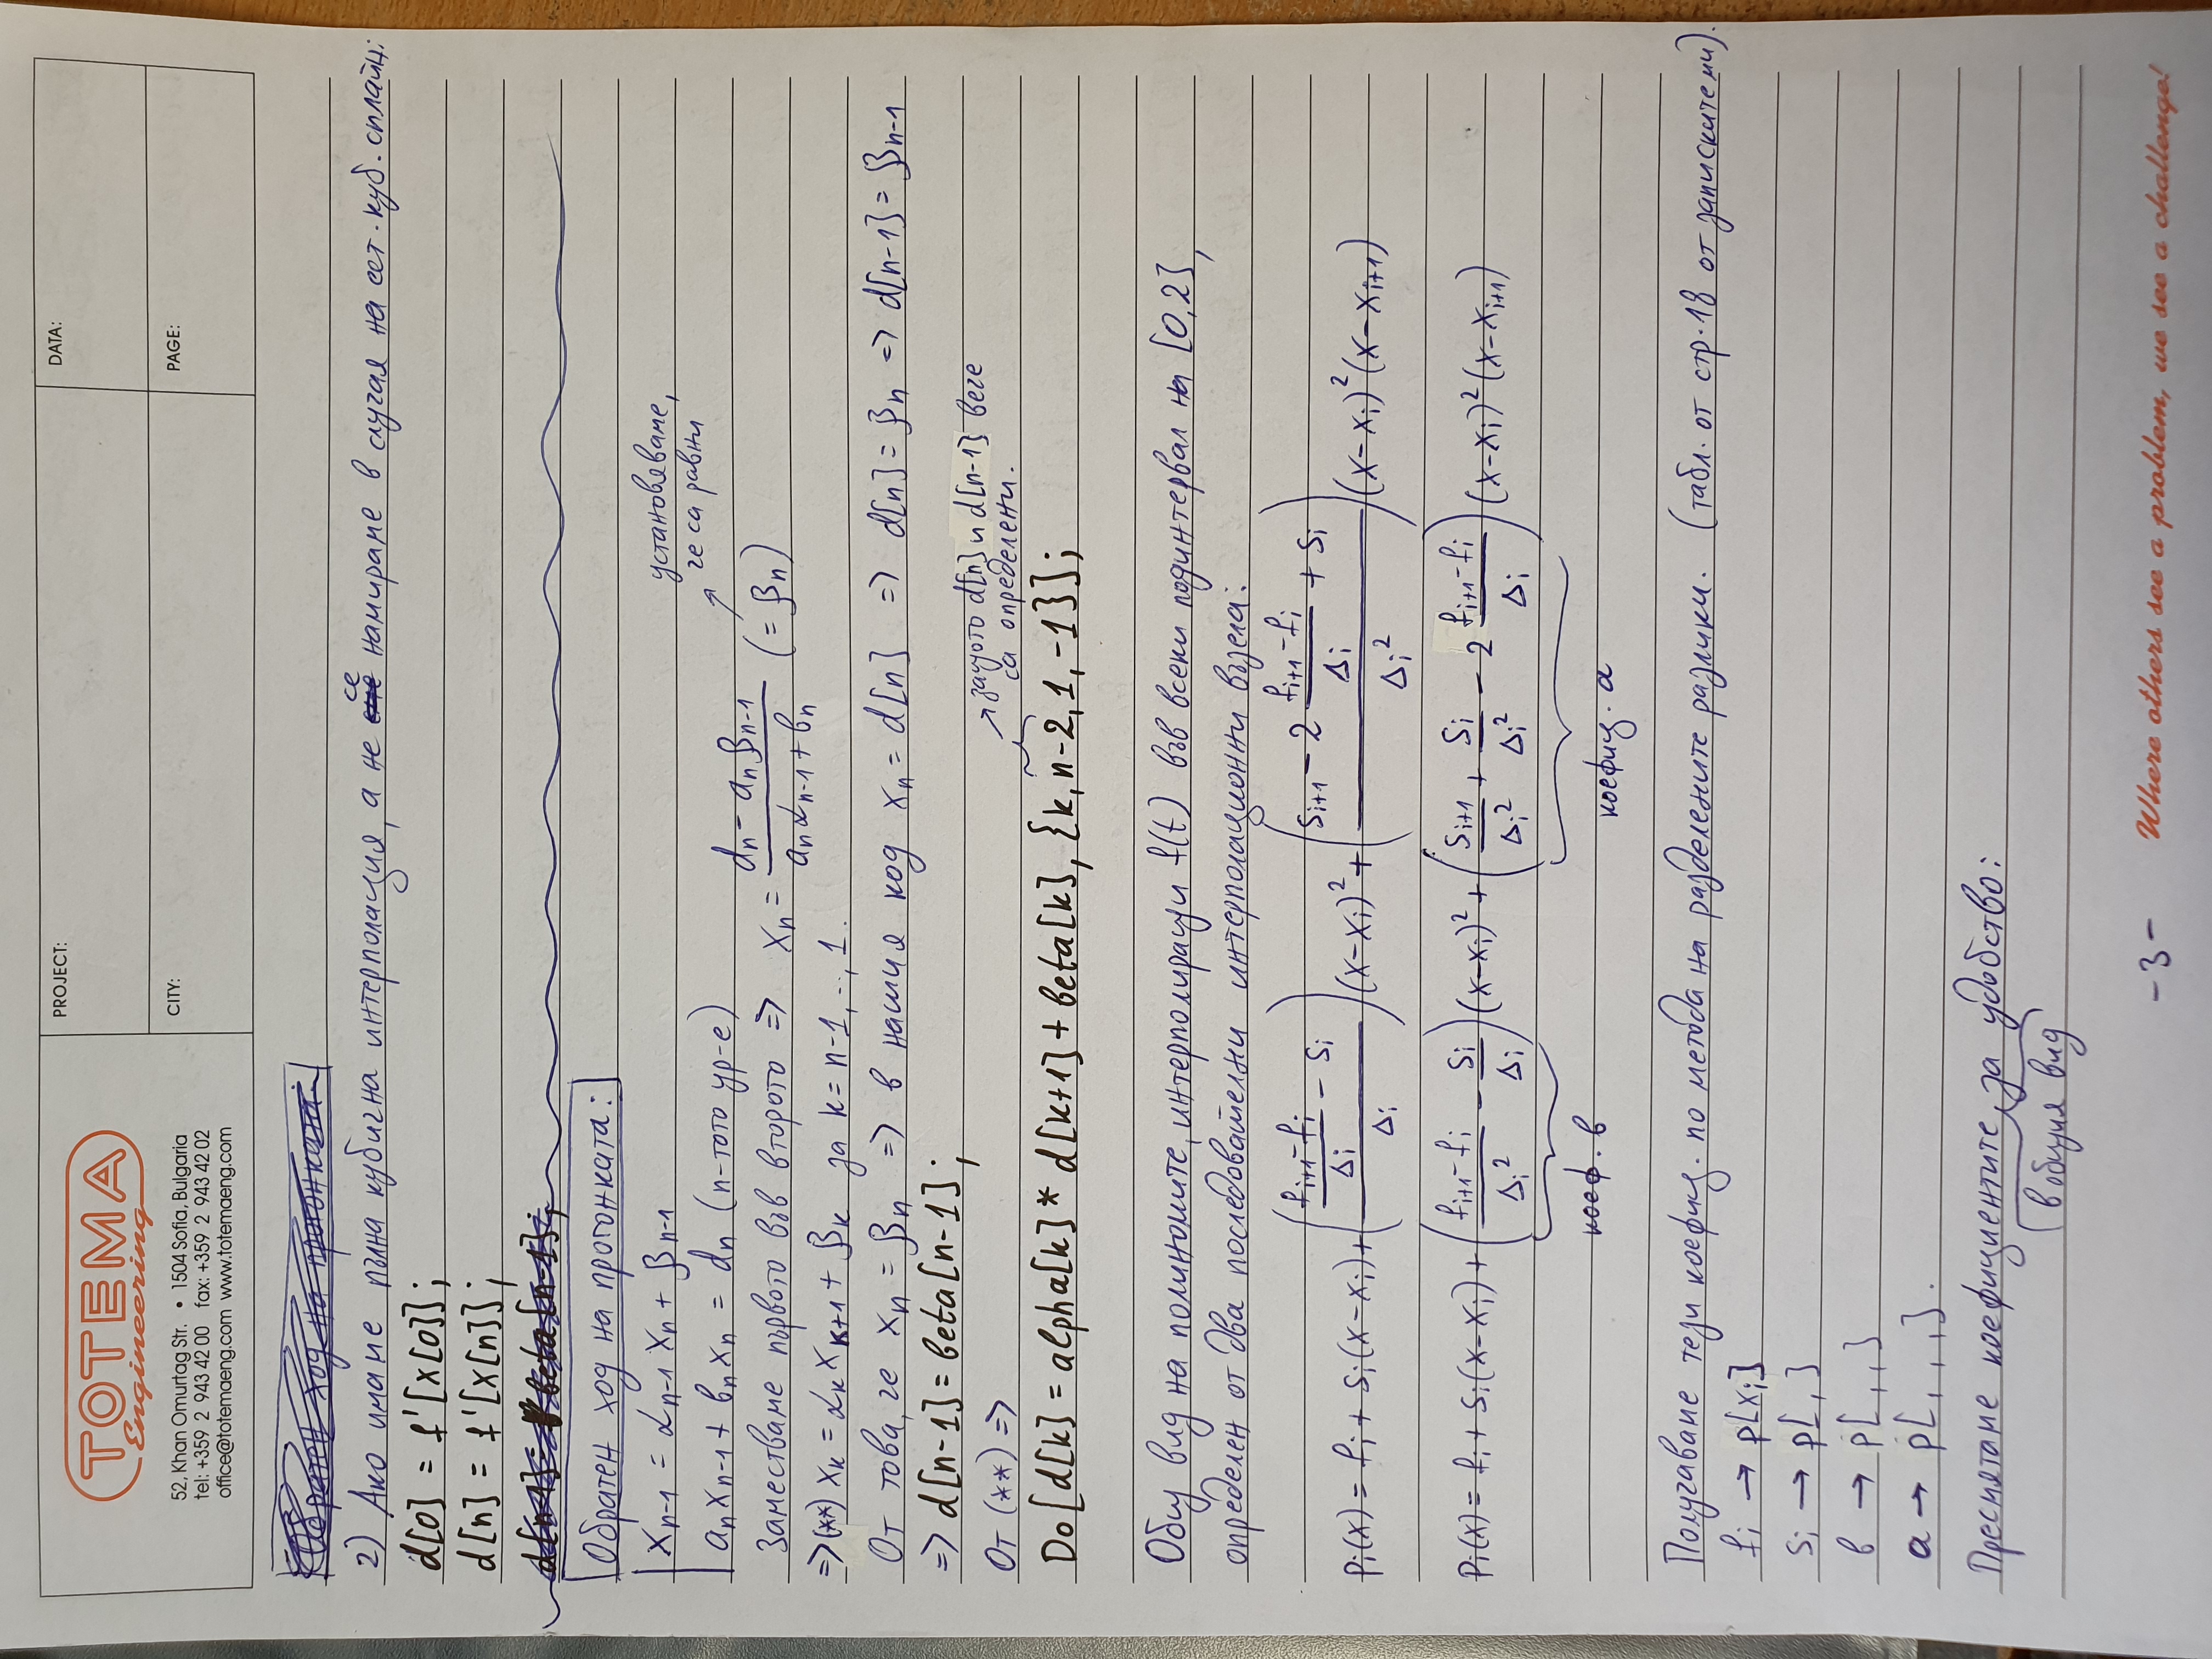 TOTEMA
Engineering
52, Khan Omurtag Str. • 1504 Sofia, Bulgaria
tel: +359 2 943 42 00 fax: +359 2 943 42 02
office@totemaeng.com www.totemaeng.com
PROJECT:
DATA:
CITY:
PAGE:
Обратен ход на прогонката:
2) Ако имаме пълна кубична интерполация, а не се намираме в случая на ест. куб. сплайн:
d[0] = f'[x[0]];
d[n] = f'[x[n]];
d[n-1] = beta[n-1];
Обратен ход на прогонката:
xₙ₋₁ = αₙ₋₁ xₙ + βₙ₋₁
aₙxₙ₋₁ + bₙxₙ = dₙ (n-тото ур-е)
установяваме,
че са равни
Заместваме първото във второто => xₙ = (dₙ - aₙβₙ₋₁)/(aₙαₙ₋₁ + bₙ) (= βₙ)
=> (**) xₖ = αₖxₖ₊₁ + βₖ за k = n-1, .., 1.
От това, че xₙ = βₙ => в нашия код xₙ = d[n] => d[n] = βₙ => d[n-1] = βₙ₋₁
=> d[n-1] = beta[n-1];
От (**) =>
защото d[n] и d[n-1] вече
са определени.
Do[d[k] = alpha[k]* d[k+1] + beta[k], {k, n-2, 1, -1}];
Общ вид на полиномите, интерполиращи f(t) във всеки подинтервал на [0,2],
определен от два последователни интерполационни възела:
pᵢ(x) = fᵢ + sᵢ(x-xᵢ) + (((fᵢ₊₁-fᵢ)/Δᵢ - sᵢ)/Δᵢ)(x-xᵢ)² + ((sᵢ₊₁ - 2 (fᵢ₊₁-fᵢ)/Δᵢ + sᵢ)/Δᵢ²)(x-xᵢ)²(x-xᵢ₊₁)
pᵢ(x) = fᵢ + sᵢ(x-xᵢ) + ((fᵢ₊₁-fᵢ)/Δᵢ² - sᵢ/Δᵢ)(x-xᵢ)² + (sᵢ₊₁/Δᵢ² + sᵢ/Δᵢ² - 2 (fᵢ₊₁-fᵢ)/Δᵢ)(x-xᵢ)²(x-xᵢ₊₁)
коеф. b
коефиц. a
Получаваме тези коефиц. по метода на разделените разлики. (табл. от стр. 18 от записките ми).
fᵢ → p[xᵢ]
sᵢ → p[ , ]
b → p[ , , ]
a → p[ , , , ].
Пресмятаме коефициентите, за удобство:
в общия вид
-3-
Where others see a problem, we see a challenge!